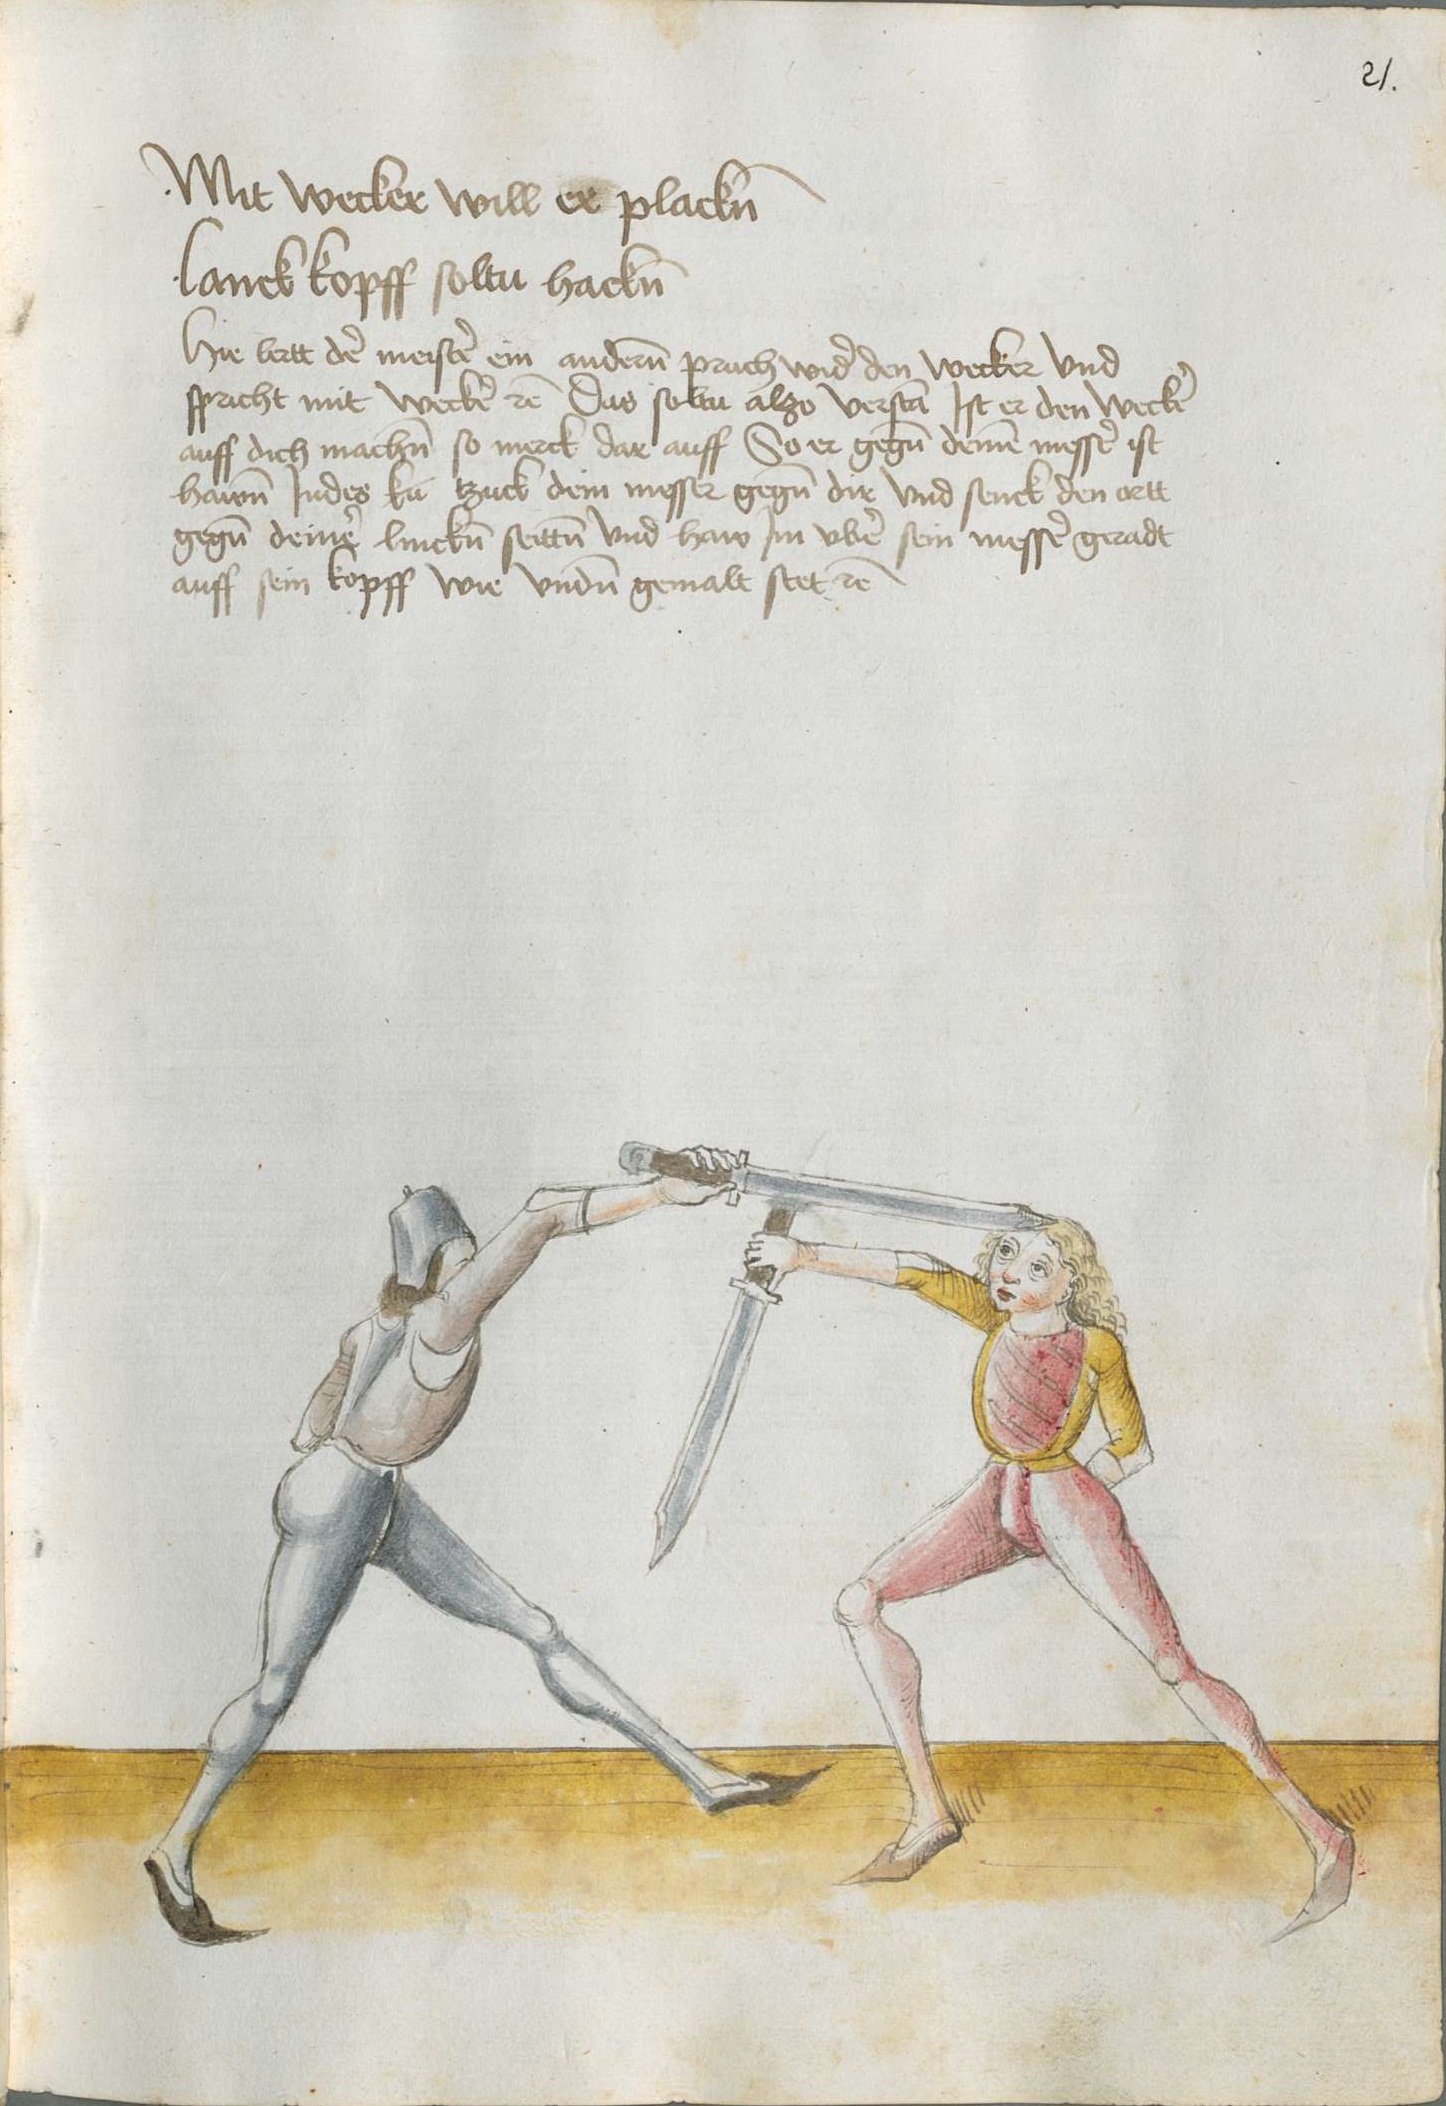 21.
Mit wecker will er plackn̄
lanck kopff soltu hackn̄
Hie lertt der̄ meister̄ ein andern̄ pruch wider̄ den wecker vnd
spricht mit wecker̄ rē Das soltu alzo verstā Ist er den wecker̄
auff dich machn̄ so merck dar auff So er gegn̄ deinē messer̄ ist
hawn̄ Indes kū tzuck dein messer gegn̄ dir vnd senck den ortt
gegn̄ deiner̄ linckn̄ seittn̄ vnd haw Im vber̄ sein messer̄ geradt
auff sein kopff wie vndn̄ gemalt stet rē